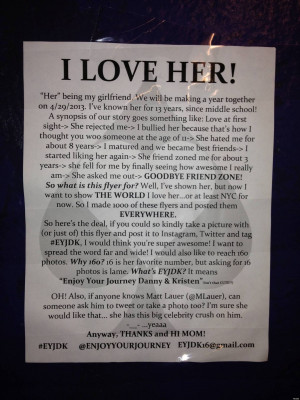 I LOVE HER!
"Her" being my girlfriend. We will be making a year together
on 4/29/2013. I've known her for 13 years, since middle school!
A synopsis of our story goes something like: Love at first
sight-> She rejected me-> I bullied her because that's how I
thought you woo someone at the age of 11-> She hated me for
about 8 years-> I matured and we became best friends-> I
started liking her again-> She friend zoned me for about 3
years-> she fell for me by finally seeing how awesome I really
am-> She asked me out-> GOODBYE FRIEND ZONE!
So what is this flyer for? Well, I've shown her, but now I
want to show THE WORLD I love her...or at least NYC for
now. So I made 1000 of these flyers and posted them
EVERYWHERE.
So here's the deal, if you could so kindly take a picture with
(or just of) this flyer and post it to Instagram, Twitter and tag
#EYJDK, I would think you're super awesome! I want to
spread the word far and wide! I would also like to reach 160
photos. Why 160? 16 is her favorite number, but asking for 16
photos is lame. What's EYJDK? It means
"Enjoy Your Journey Danny & Kristen"
OH! Also, if anyone knows Matt Lauer (@MLauer), can
someone ask him to tweet or take a photo too? I'm sure she
would like that... she has this big celebrity crush on him.
-__- ...yeaaa
Anyway, THANKS and HI MOM!
#EYJDK @ENJOYYOURJOURNEY EYJDK16@gmail.com